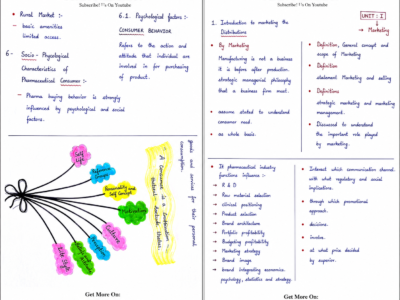 Subscribe! On YouTube
• Rural Market :-
- basic amenities
limited access.
6 - Socio - Phycological
Characteristics of
Pharmaceutical Consumer :-
- Pharma buying behavior is strongly
influenced by psychological and social
factors.
6.1. Psychological factors :-
CONSUMER BEHAVIOR
Refers to the action and
attitude that individual are
involved in for purchasing
of product.
goods and services for their personal
consumption.
- A Consumer is a Combination
Cultural
Self
Reference Groups
Personality and Self Concept
Motivation
Culture
Perception
Life Style
Get More On:
Subscribe! On YouTube
UNIT : I
→ Marketing
1. Introduction to marketing the
Distributions
• By Marketing
Manufacturing is not a business
it is before after production.
strategic managerial philosophy
that a business firm must.
• assume stated to understand
consumer need.
• as whole basis.
• Definition, General concept and
scope of Marketing
• Definition
statement Marketing and selling
• Definitions
strategic marketing and marketing
management.
• Discussed to understand
the important role played
by marketing.
• If pharmaceutical industry
functions influence :-
→ R & D
→ Raw material selection
→ clinical positioning
→ Product selection
→ Brand architecture
→ Portfolio profitability
→ Budgeting profitability
→ Marketing strategy
→ Brand image
→ brand integrating economics
psychology, statistics and strategy.
• Interact which communication channel
with what regulatory and social
implications.
• through which promotional
approach.
• decisions.
• involve.
• at what price decided
by superior.
Get More On: